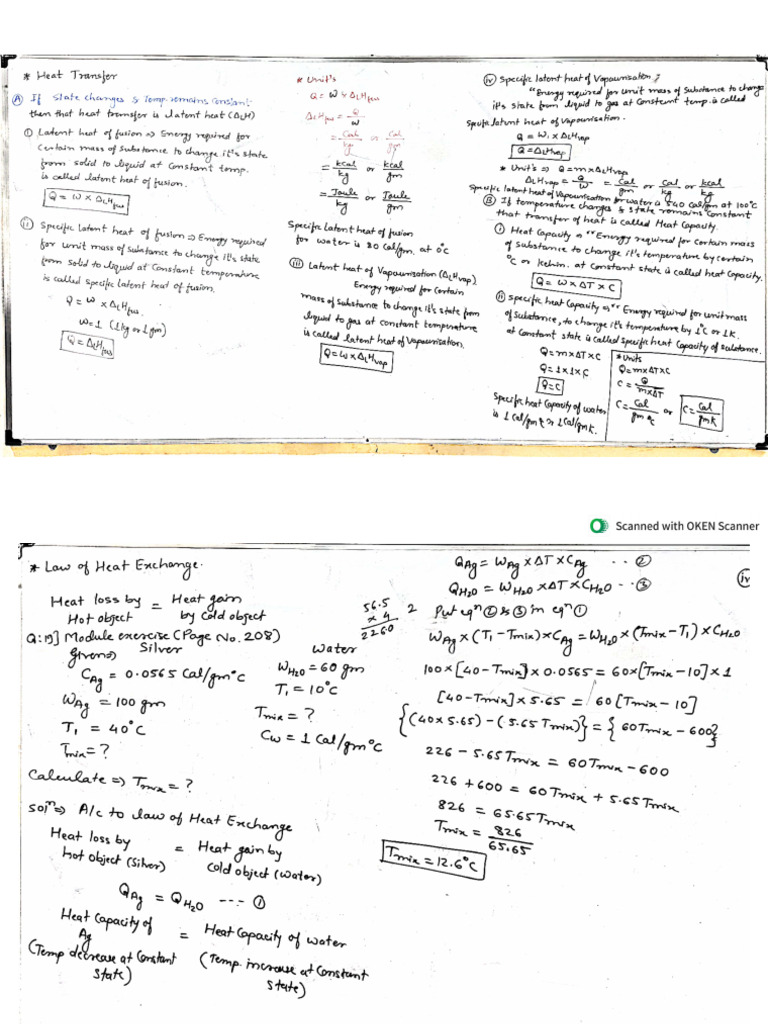 * Heat Transfer
Ⓐ If State changes & Temp. remains Constant
then that heat transfer is latent heat (ΔLH)
① Latent heat of fusion ⇒ Energy required for
Certain mass of substance to change it's state
from solid to liquid at Constant temp.
is called latent heat of fusion.
Q = W × ΔLHfus
ⅱ Specific Latent heat of fusion ⇒ Energy required
for unit mass of Substance to change it's state
from Solid to liquid at Constant temperature
is called specific Latent heat of fusion.
Q = W × ΔLHfus.
W = 1 (1kg or 1gm)
Q = ΔLHfus
* Unit's
Q = W × ΔLHfus
ΔLHfus = Q/W
= Cal/kg or Cal/gm
= kcal/kg or kcal/gm
= Joule/kg or Joule/gm
Specific Latent heat of fusion
for water is 80 Cal/gm. at 0°c
ⅲ Latent heat of Vapourisation (ΔLHvap)
Energy required for Certain
mass of Substance to change it's state from
liquid to gas at constant temperature
is called latent heat of Vapourisation.
Q = W × ΔLHvap
ⅳ Specific latent heat of Vapourisation;
"Energy required for Unit mass of Substance to change
it's state from liquid to gas at Constant temp. is called
Specific latent heat of Vapourisation.
Q = W × ΔLHvap
Q = ΔLHvap
* Unit's ⇒ Q = m × ΔLHvap
ΔLHvap = Q/W = Cal/gm or Cal/kg or kcal/kg
Specific latent heat of Vapourisation for water is 540 Cal/gm at 100°C
Ⓑ If temperature changes & State remains Constant
that transfer of heat is called Heat Capacity.
ⅰ Heat Capacity ⇒ "Energy required for Certain mass
of Substance to change it's temperature by certain
°C or Kelvin. at Constant state is called heat Capacity.
Q = W × ΔT × C
ⅱ Specific heat Capacity ⇒ "Energy required for unit mass
of Substance, to change it's temperature by 1°C or 1K.
at Constant state is called Specific heat Capacity of Substance.
Q = m × ΔT × C
Q = 1 × 1 × C
Q = C
Specific heat Capacity of water
is 1 Cal/gm°C or 1 Cal/gm K.
* Units
Q = m × ΔT × C
C = Q/m×ΔT
C = Cal/gm °C or C = Cal/gm K
Scanned with OKEN Scanner
* Law of Heat Exchange.
Heat loss by Hot object = Heat gain by Cold object
Q:19] Module exercise (Page No. 208)
Given ⇒ Silver
C_Ag = 0.0565 Cal/gm°C
W_Ag = 100 gm
T₁ = 40°C
Tmix = ?
Water
W_H₂O = 60 gm
T₁ = 10°C
Tmix = ?
Cw = 1 Cal/gm°C
56.5
× 4
2260
Calculate ⇒ Tmix = ?
Solⁿ ⇒ A/c to law of Heat Exchange
Heat loss by hot object (Silver) = Heat gain by Cold object (Water)
Q_Ag = Q_H₂O --- ①
Heat Capacity of Ag = Heat Capacity of water
(Temp decrease at Constant state) (Temp. increase at Constant state)
Q_Ag = W_Ag × ΔT × C_Ag -- ②
Q_H₂O = W_H₂O × ΔT × C_H₂O -- ③
Put eqⁿ ② & ③ in eqⁿ ①
W_Ag × (T₁ - Tmix) × C_Ag = W_H₂O × (Tmix - T₁) × C_H₂O
100 × [40 - Tmix] × 0.0565 = 60 × [Tmix - 10] × 1
[40 - Tmix] × 5.65 = 60 [Tmix - 10]
{(40 × 5.65) - (5.65 Tmix)} = {60 Tmix - 600}
226 - 5.65 Tmix = 60 Tmix - 600
226 + 600 = 60 Tmix + 5.65 Tmix
826 = 65.65 Tmix
Tmix = 826/65.65
Tmix = 12.6°C
ⅳ